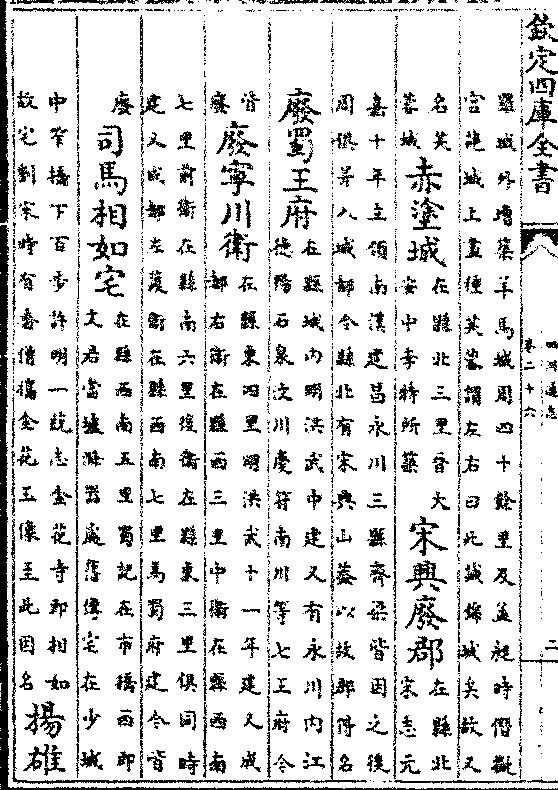 欽定四庫全書
四川通志
卷二十六
二
羅城外增築羊馬城周四十餘里及孟昶時僭擬
宮苑城上盡種芙蓉謂左右曰此誠錦城矣故又
名芙蓉城
赤塗城
在縣北三里晉大安中李特所築
宋興廢郡
在縣北宋志元
嘉十年主領南漢建昌永川三縣齊梁皆因之後
周俱并入城都今縣北有宋興山蓋以故郡得名
廢蜀王府
在縣城内明洪武中建又有永川内江
德陽石泉汶川慶符南川等七王府今
皆廢
廢寧川衛
在縣東四里明洪武十一年建又成
都右衛在縣西三里中衛在縣西南
七里前衛在縣南六里後衛在縣東三里俱同時
建又成都左護衛在縣西南七里為蜀府建今皆
廢
司馬相如宅
在縣西南五里蜀記在市橋西即
文君當壚滌器處舊傳宅在少城
中窄橋下百步許明一統志金花寺即相如
故宅劉宋時有番僧攜金花玉像至此因名
揚雄